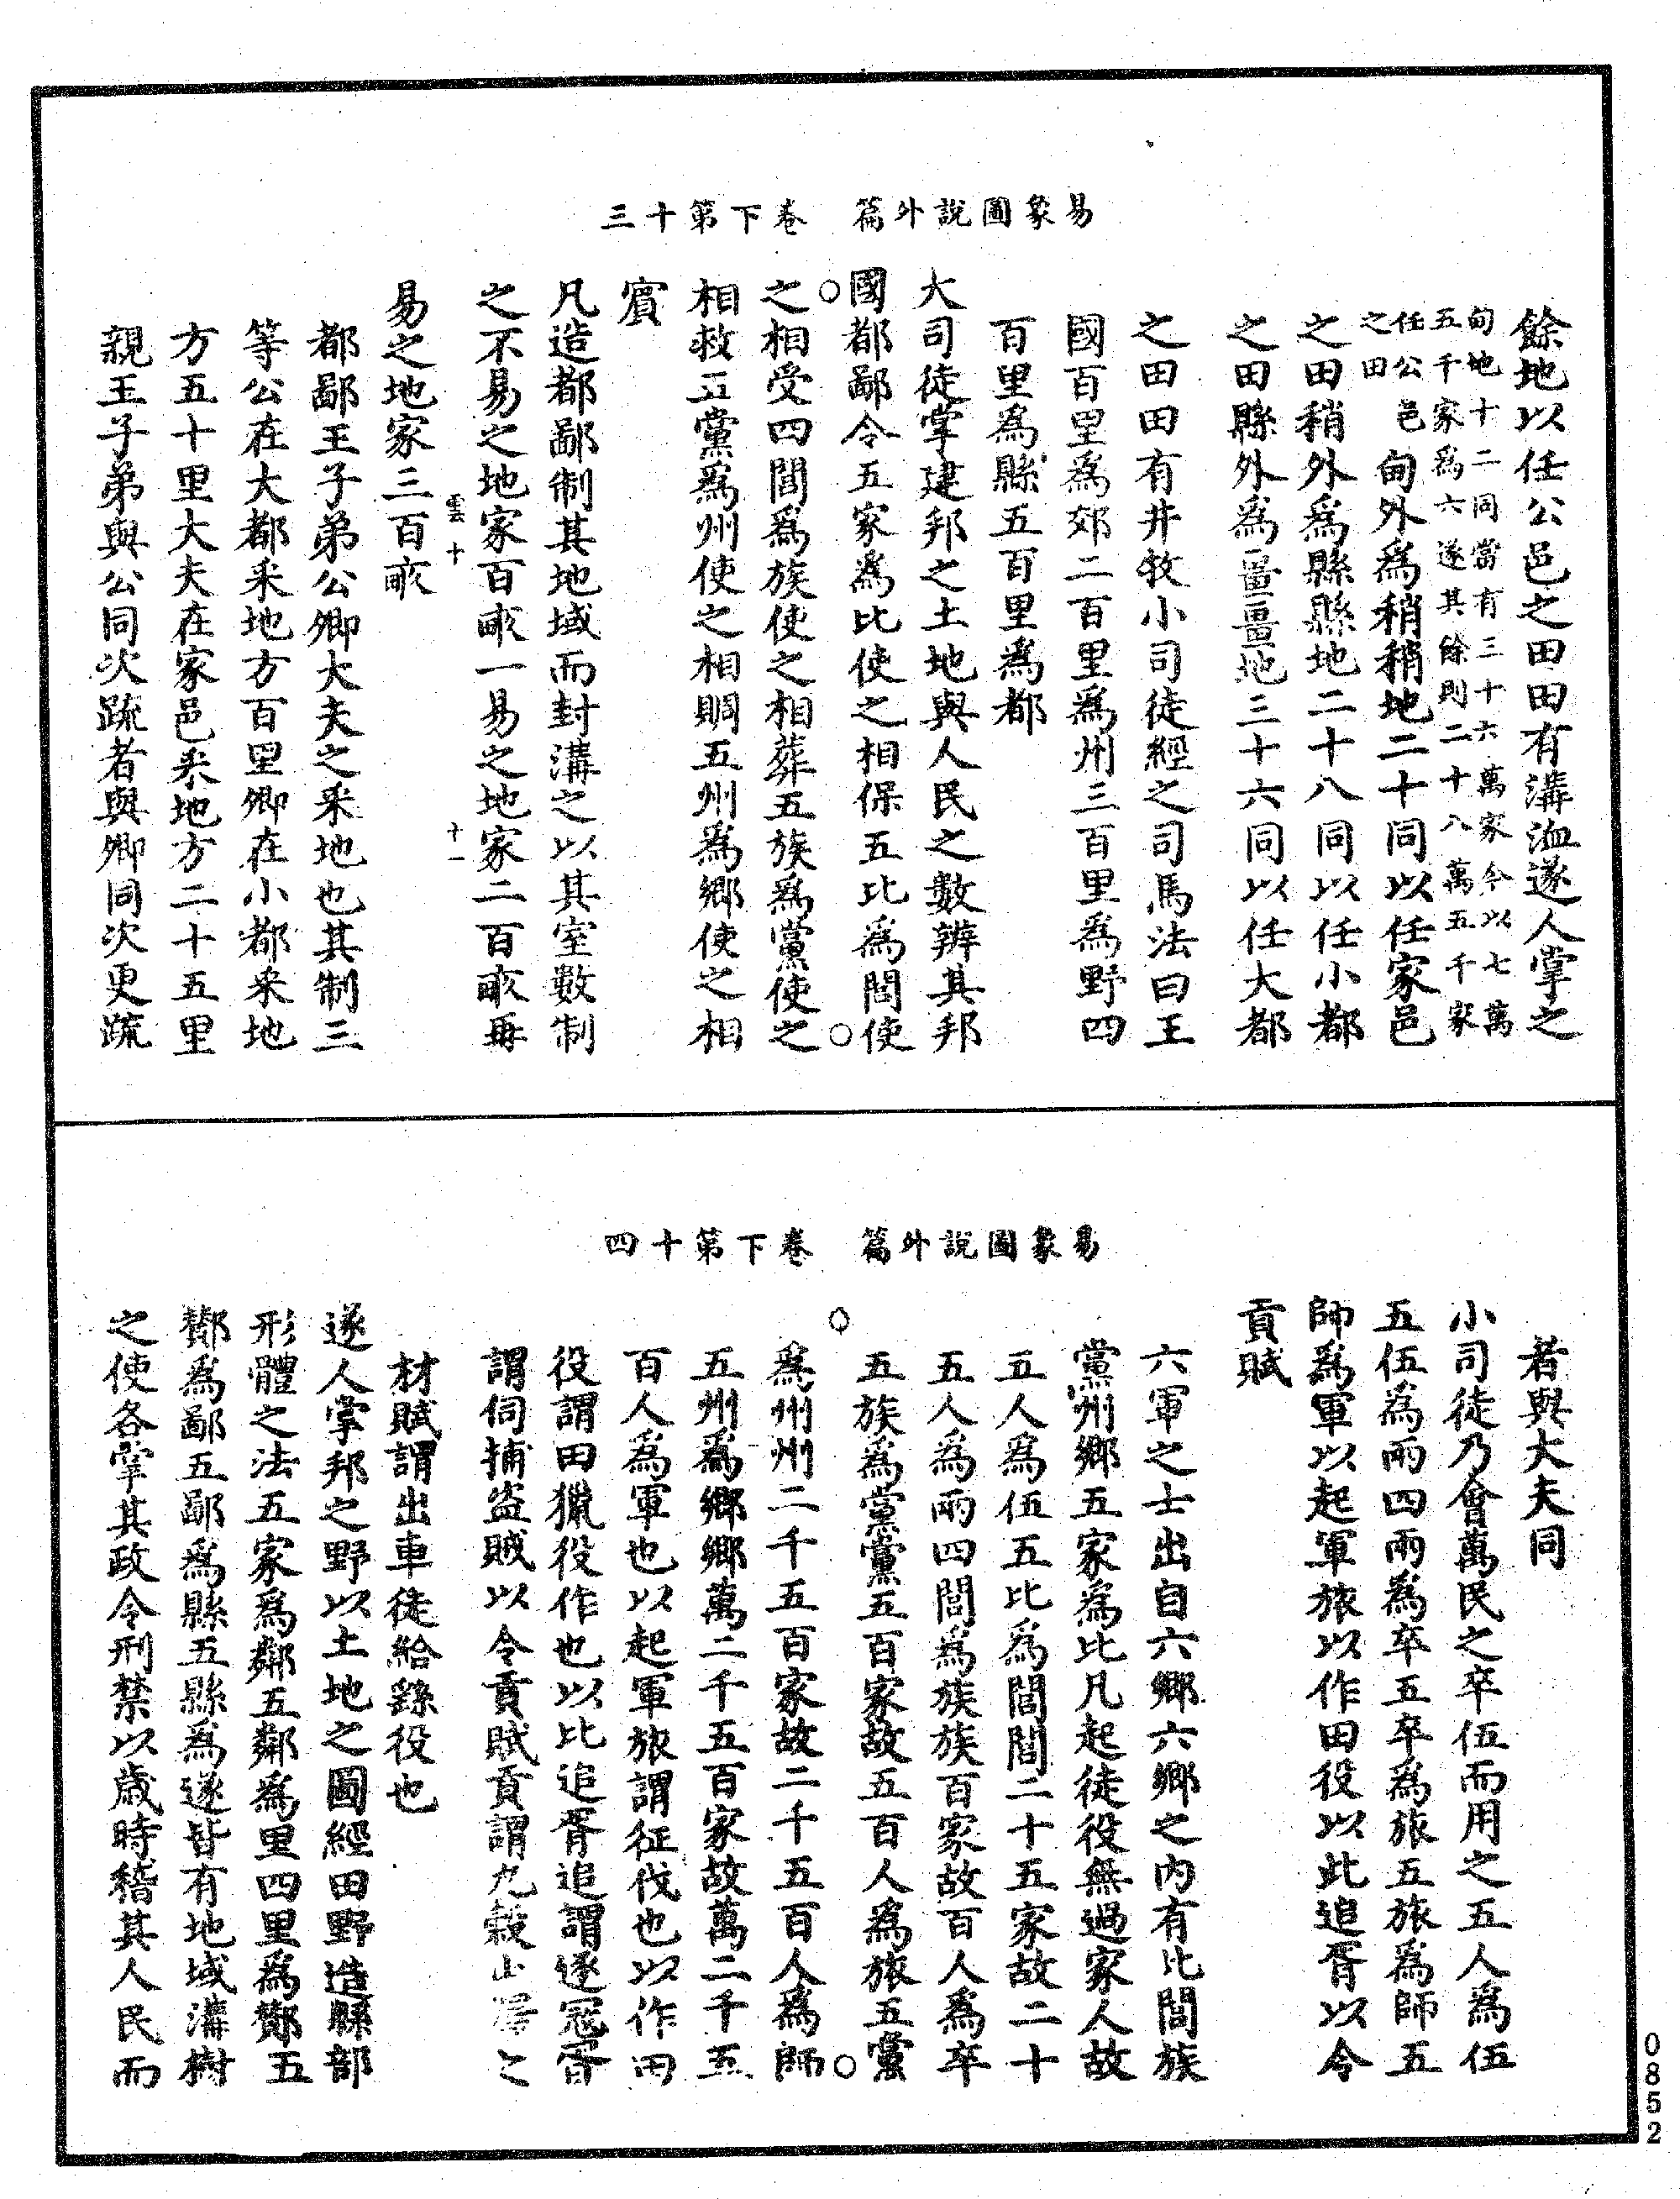 易象圖說外篇　卷下第十三
餘地以任公邑之田田有溝洫遂人掌之
甸地十二同當有三十六萬家今以七萬
五千家爲六遂其餘則二十八萬五千家
任公邑
之田
甸外爲稍稍地二十同以任家邑
之田稍外爲縣縣地二十八同以任小都
之田縣外爲畺畺地三十六同以任大都
之田田有井牧小司徒經之司馬法曰王
國百里爲郊二百里爲州三百里爲野四
百里爲縣五百里爲都
大司徒掌建邦之土地與人民之數辨其邦
國都鄙令五家爲比使之相保五比爲閭使
之相受四閭爲族使之相葬五族爲黨使之
相救五黨爲州使之相賙五州爲鄉使之相
賓
凡造都鄙制其地域而封溝之以其室數制
之不易之地家百畝一易之地家二百畝再
雲十
十一
易之地家三百畝
都鄙王子弟公卿大夫之釆地也其制三
等公在大都釆地方百里卿在小都釆地
方五十里大夫在家邑釆地方二十五里
親王子弟與公同次疏者與卿同次更疏
易象圖說外篇　卷下第十四
者與大夫同
小司徒乃會萬民之卒伍而用之五人爲伍
五伍爲兩四兩爲卒五卒爲旅五旅爲師五
師爲軍以起軍旅以作田役以比追胥以令
貢賦
六軍之士出自六鄉六鄉之內有比閭族
黨州鄉五家爲比凡起徒役無過家人故
五人爲伍五比爲閭閭二十五家故二十
五人爲兩四閭爲族族百家故百人爲卒
五族爲黨黨五百家故五百人爲旅五黨
爲州州二千五百家故二千五百人爲師
五州爲鄉鄉萬二千五百家故萬二千五
百人爲軍也以起軍旅謂征伐也以作田
役謂田獵役作也以比追胥追謂逐寇胥
謂伺捕盜賊以令貢賦貢謂九穀山澤之
材賦謂出車徒給繇役也
遂人掌邦之野以土地之圖經田野造縣鄙
形體之法五家爲鄰五鄰爲里四里爲酇五
酇爲鄙五鄙爲縣五縣爲遂皆有地域溝樹
之使各掌其政令刑禁以歲時稽其人民而
0852